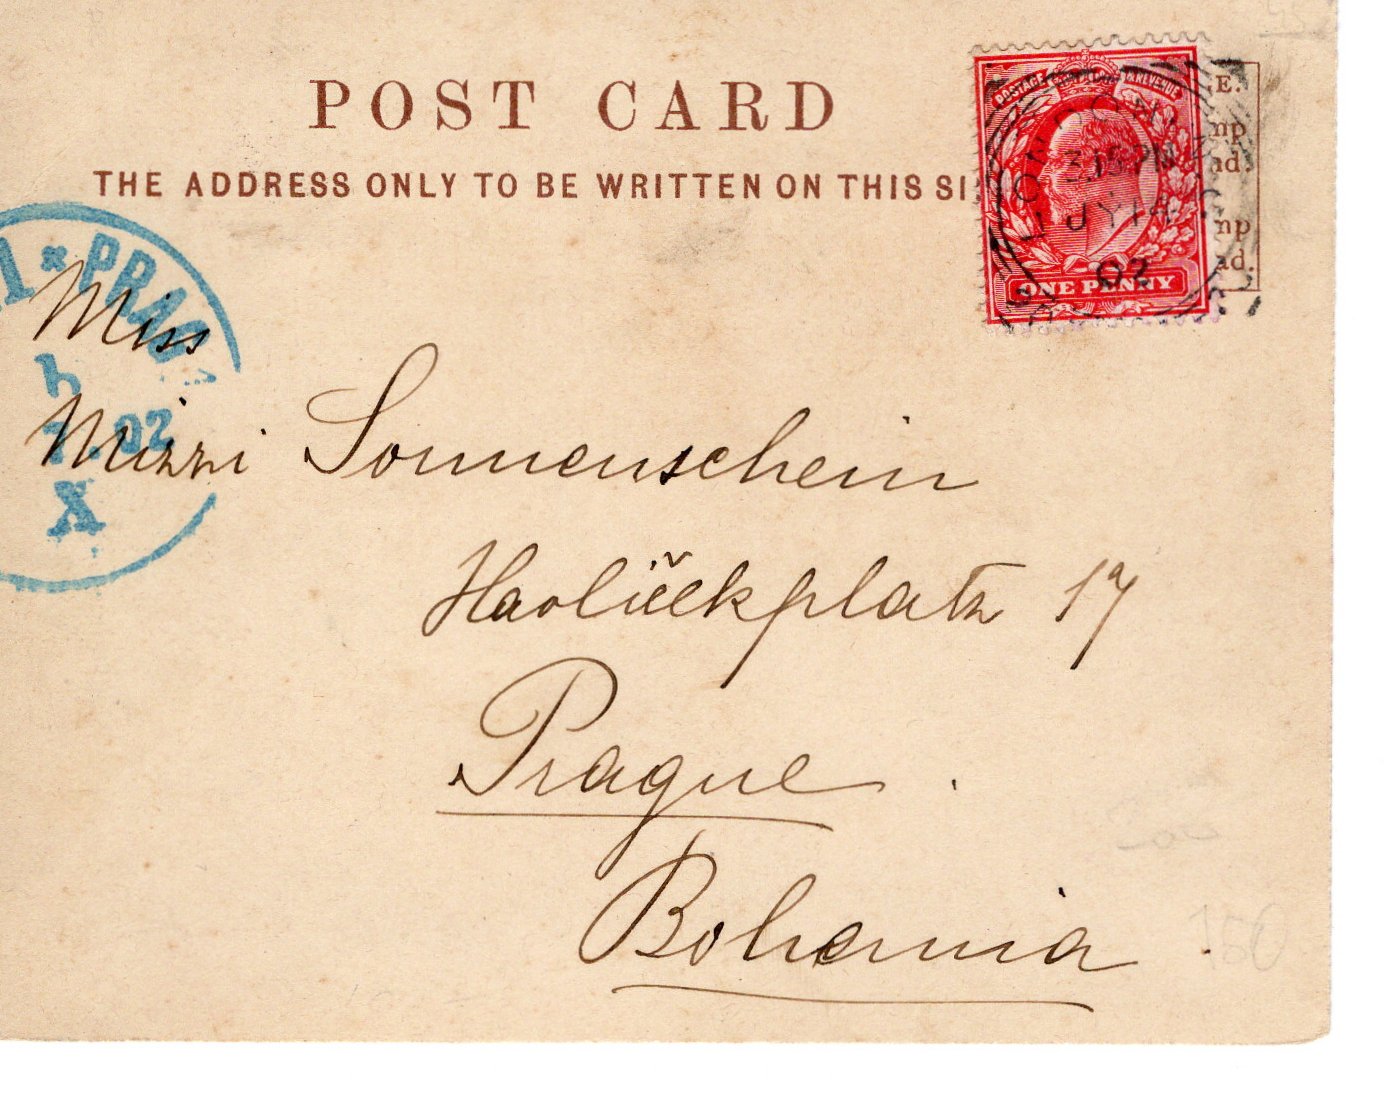 POST CARD
THE ADDRESS ONLY TO BE WRITTEN ON THIS SI
POSTAGE & REVENUE
LONDON
3.15 PM
JY 14
02
ONE PENNY
E.
mp
ad.
mp
ad.
PRAG
02
X
Miss
Mizzi Sonnenschein
Havlíčekplatz 17
Prague
Bohemia
150